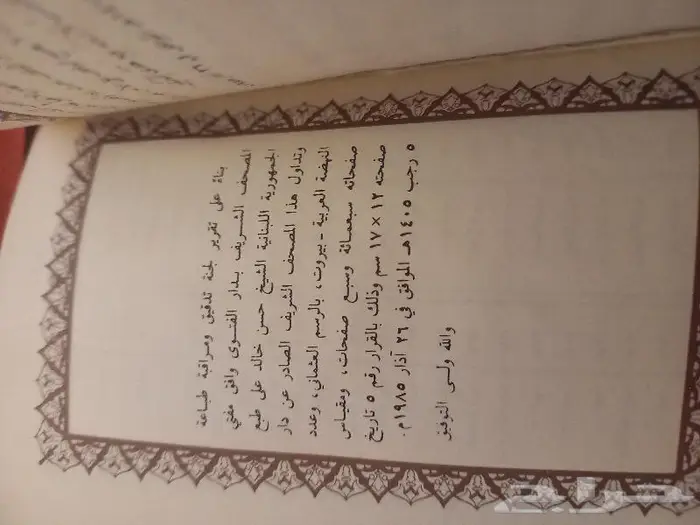 بناءً على تقرير لجنة تدقيق ومراقبة طباعة
المصحف الشريف بدار الفتوى وافق مفتي
الجمهورية اللبنانية الشيخ حسن خالد على طبع
وتداول هذا المصحف الشريف الصادر عن دار
النهضة العربية - بيروت، بالرسم العثماني، وعدد
صفحاته سبعمائة وسبع صفحات، ومقياس
صفحته ١٢ × ١٧ سم وذلك بالقرار رقم ٥ تاريخ
٥ رجب ١٤٠٥هـ الموافق في ٢٦ آذار ١٩٨٥م.
والله ولي التوفيق
حراج